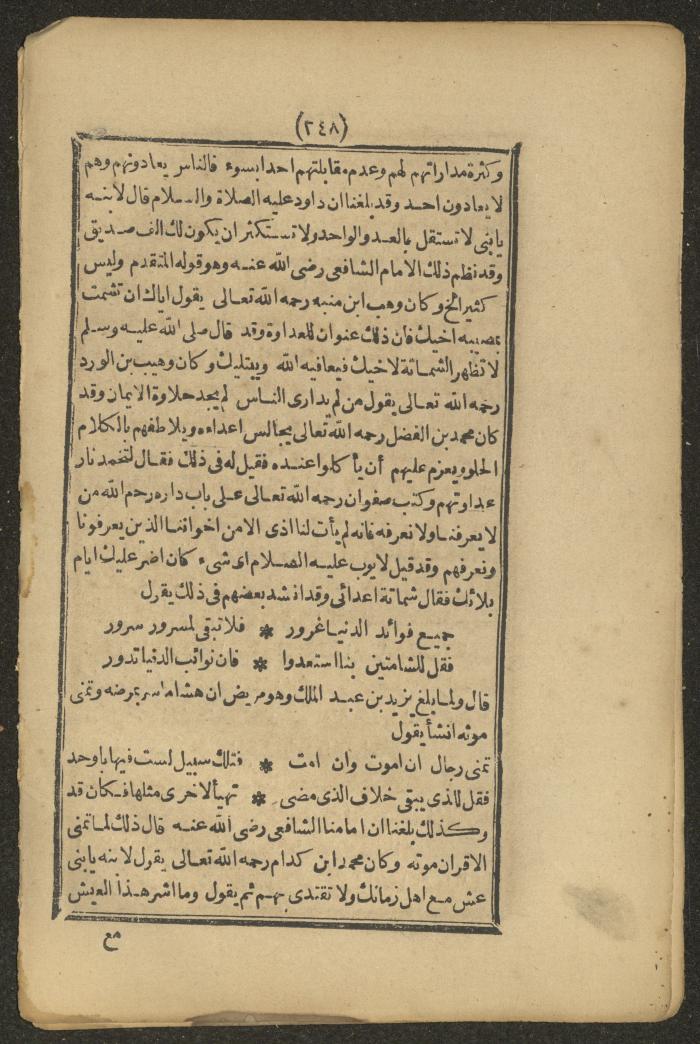 (٢٤٨)
وكثرة مداراتهم لهم وعدم مقابلتهم احدا بسوء فالناس يعادونهم وهم
لا يعادون احد وقد بلغنا ان داود عليه الصلاة والسلام قال لابنه
يابنى لا تستقل بالعدو الواحد ولا تستكثر ان يكون لك الف صديق
وقد نظم ذلك الامام الشافعى رضى الله عنه وهو قوله المتقدم وليس
كثير الخ وكان وهب ابن منبه رحمه الله تعالى يقول اياك ان تشمت
بمصيبه اخيك فان ذلك عنوان للعداوة وقد قال صلى الله عليه وسلم
لا تظهر الشماتة لاخيك فيعافيه الله ويبتليك وكان وهيب بن الورد
رحمه الله تعالى يقول من لم يدارى الناس لم يجد حلاوة الايمان وقد
كان محمد بن الفضل رحمه الله تعالى يجالس اعداءه ويلاطفهم بالكلام
الحلو ويعزم عليهم أن يأكلوا عنده فقيل له فى ذلك فقال لتخمد نار
عداوتهم وكتب صفوان رحمه الله تعالى على باب داره رحم الله من
لا يعرفنا ولا نعرفه فانه لم يأت لنا اذى الا من اخواننا الذين يعرفونا
ونعرفهم وقد قيل لايوب عليه الصلام اى شىء كان اضر عليك ايام
بلائك فقال شماتة اعدائى وقد انشد بعضهم فى ذلك يقول
جميع فوائد الدنيا غرور * فلا تبقى لمسرور سرور
فقل للشامتين بنا استعدوا * فان نوائب الدنيا تدور
قال ولما بلغ يزيد بن عبد الملك وهو مريض ان هشاما سر بمرضه وتمنى
موته انشأ يقول
تمنى رجال ان اموت وان امت * فتلك سبيل لست فيها باوحد
فقل للذى يبقى خلاف الذى مضى * تهيأ لاخرى مثلها فكان قد
وكذلك بلغنا ان امامنا الشافعى رضى الله عنه قال ذلك لما تمنى
الاقران موته وكان محمد ابن كدام رحمه الله تعالى يقول لابنه يابنى
عش مع اهل زمانك ولا تقتدى بهم ثم يقول وما اشر هذا العيش
مع